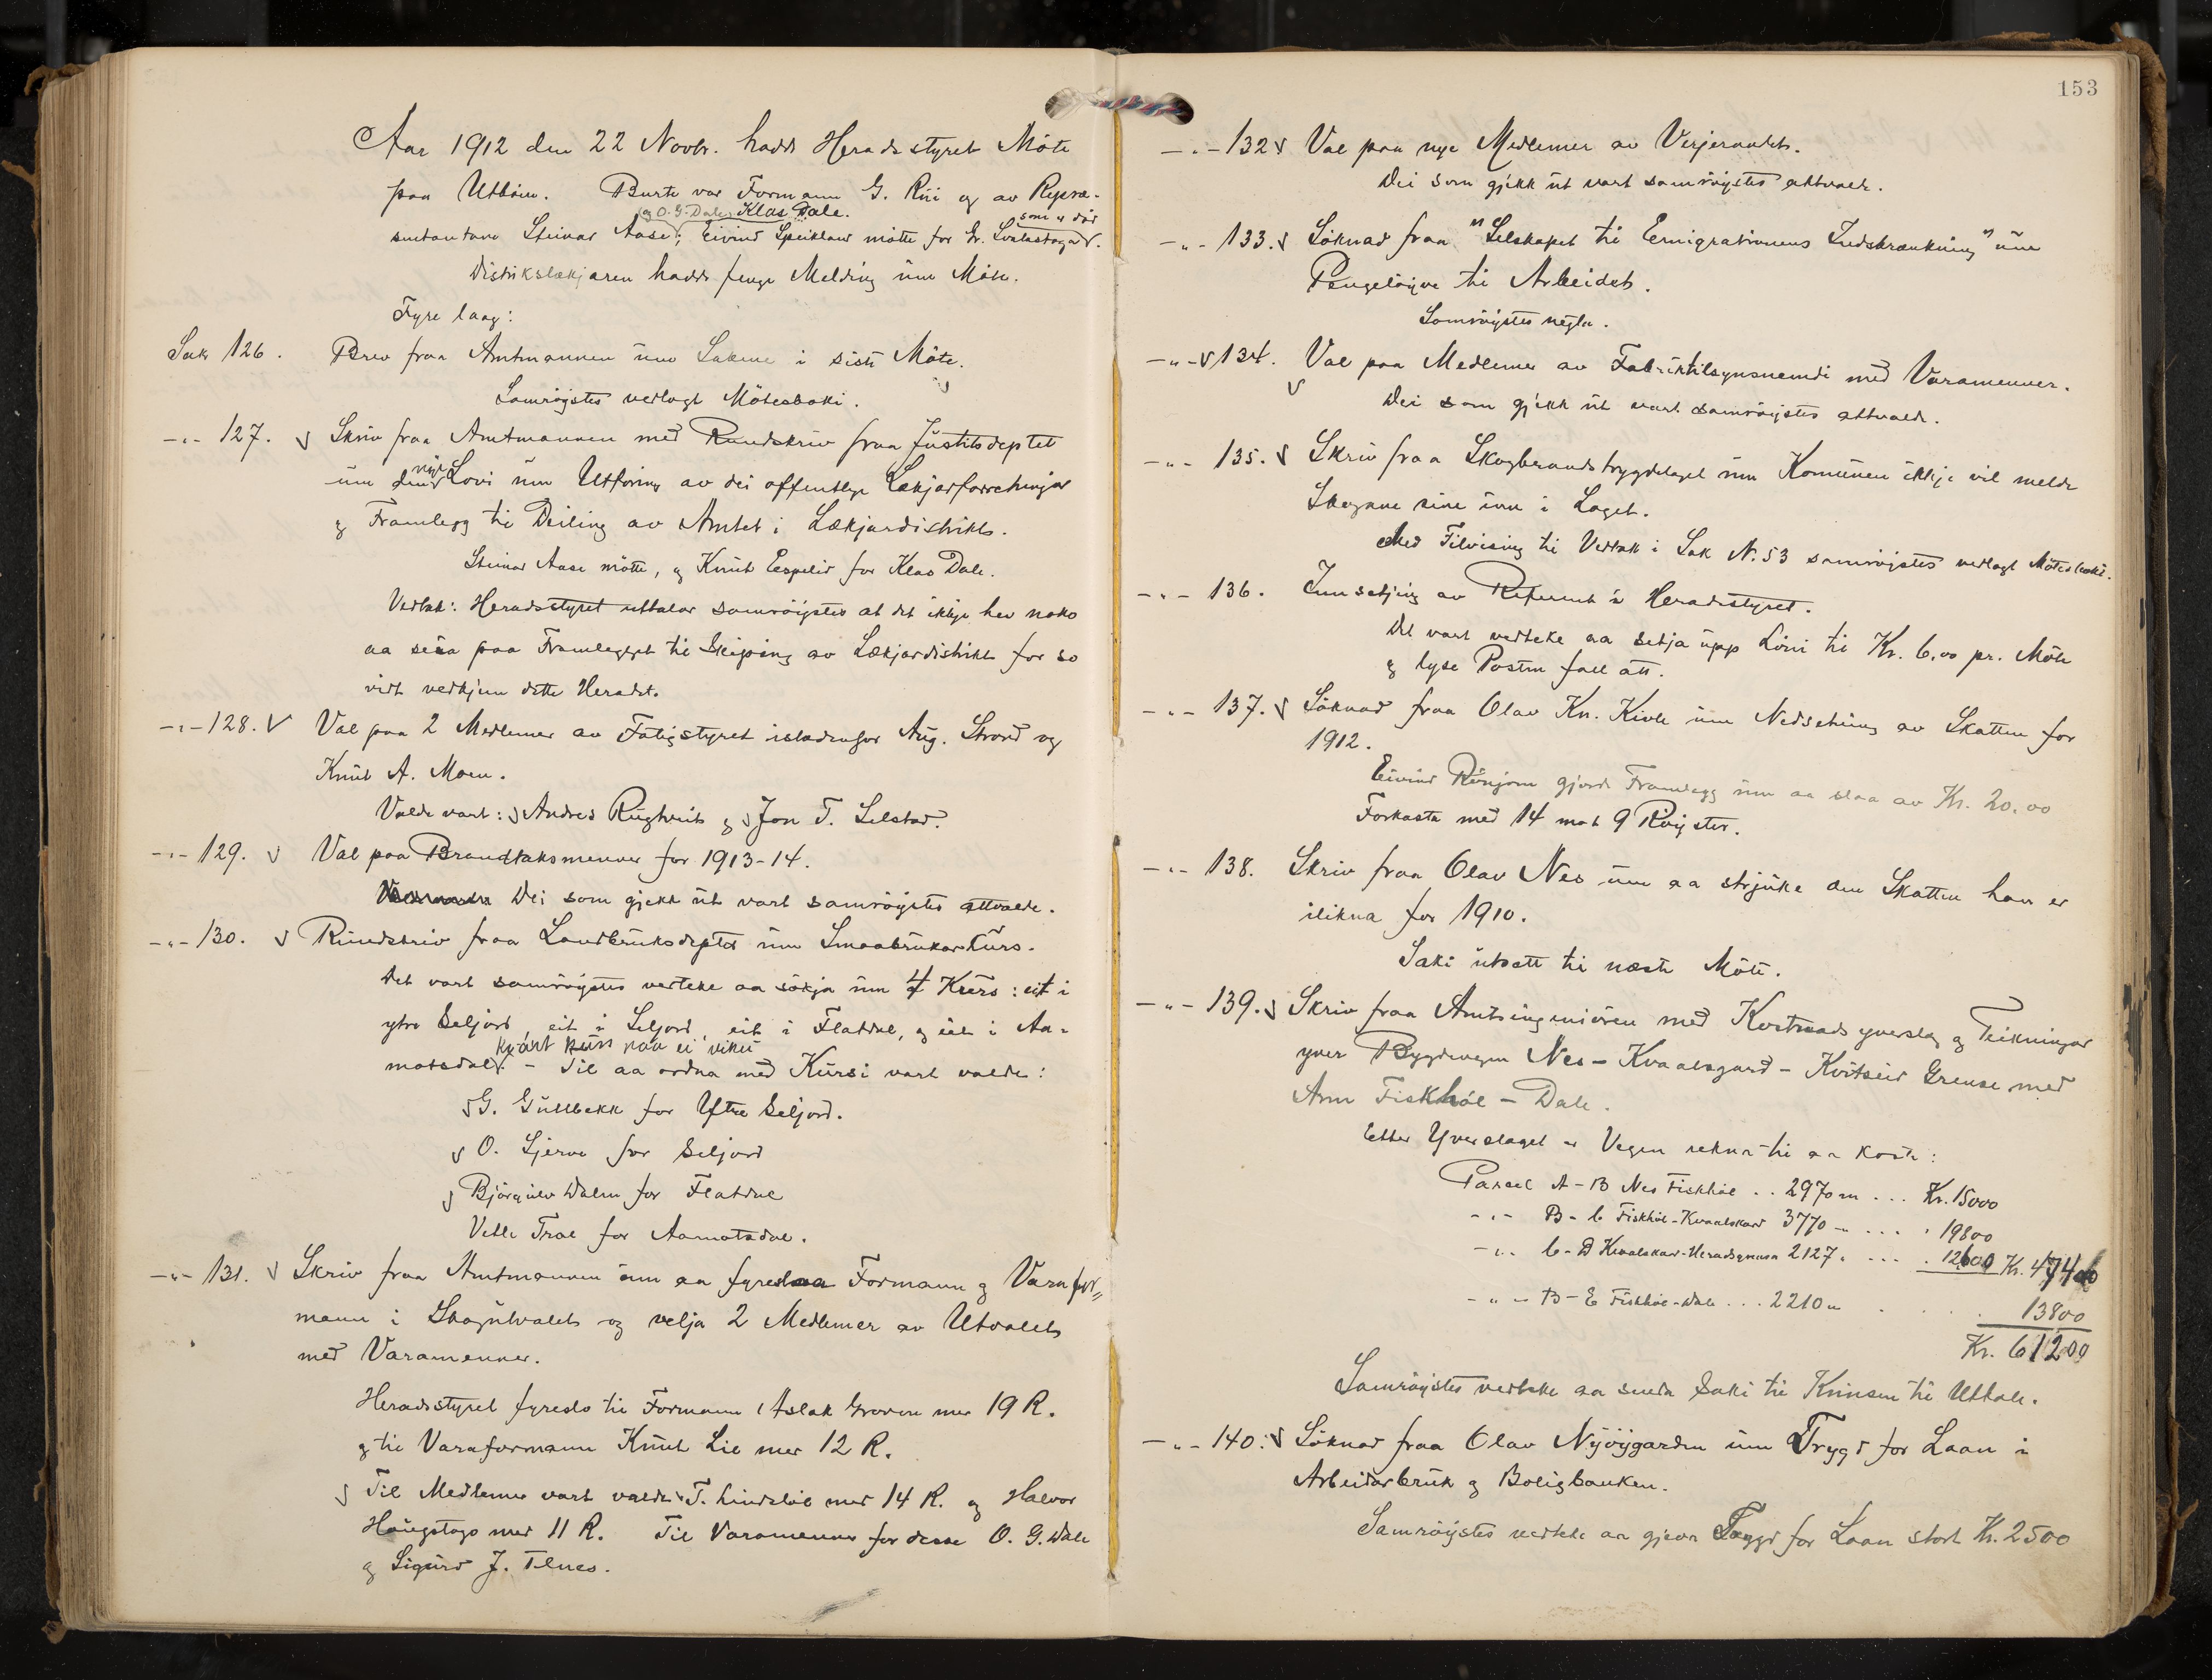 Aar 1912 den 22 Novbr. hadde Heradsstyret Möte
paa Utböen. Burte var Formann G. Rui og av Repræ-
og O. G. Dale, Klas Dale. som er död
sentantane Steinar Aase; Eivind Speikland mötte for Gr. Svalastoga.
Distrikslækjaren hadde fenge Melding um Möte.
Fyre laag:
Sak 126. Brev fraa Amtmannen um Sakene i siste Möte.
Samröystes vedlagt Mötesboki.
-"- 127. Skriv fraa Amtmannen med Rundskriv fraa Justitsdeptet
um den nye Lovi um Utföring av dei offentlege Lækjarforretningar
og Framlegg til Deiling av Amtet i Lækjardistrikts.
Steinar Aase mötte, og Knut Espelid for Klas Dale.
Vedtak: Heradsstyret uttalar samröystes at det ikkje hev noko
aa seia paa Framlegget til Skiping av Lækjardistrikt for so
vidt vedkjem dette Heradet.
-"- 128. Val paa 2 Medlemer av Fatigstyret istadenfor Aug. Strond og
Knut A. Moen.
Valde vart: Andres Rugtveit og Jon T. Selstad.
-"- 129. Val paa Brandtaksmenner for 1913-14.
Dei som gjekk ut vart samröystes attvalde.
-"- 130. Rundskriv fraa Landbruksdeptet um Smaabrukarkurs.
Det vart samröystes vedteke aa sökja um 4 Kurs: eit i
ytre Seljord, eit i Seljord, eit i Flatdal, og eit i Aa-
kvart kurs paa ei viku
motsdal. - Til aa ordna med Kursi vart valde:
G. Gullbekk for Ytre Seljord.
O. Gjerva for Seljord
Björgulv Dalen for Flatdal
Vetle Trae for Aamotsdal.
-"- 131. Skriv fraa Amtmannen um aa fyreslaa Formann og Varafor-
mann i Skogutvalet og velja 2 Medlemer av Utvalet
med Varamenner.
Heradsstyret fyreslo til Formann Aslak Groven med 19 R.
og til Varaformann Knut Lie med 12 R.
Til Medlemer vart valde T. Lindsköl med 14 R. og Halvor
Haugstogo med 11 R. Til Varamenner for desse O. G. Dale
og Sigurd J. Telnes.
153
-"- 132 Val paa nye Medlemer av Verjeraadet.
Dei som gjekk ut vart samröystes attvalde.
-"- 133. Söknad fraa "Selskapet til Emigrationens Indskrænkning" um
Pengelöyve til Arbeidet.
Samröystes negta.
-"- 134. Val paa Medlemer av Fabriktilsynsnemdi med Varamenner.
Dei som gjekk ut vart samröystes attvalde.
-"- 135. Skriv fraa Skogbrandstrygdelaget um Komunen ikkje vil melde
Skogane sine inn i Laget.
Med Tilvising til Vedtak i Sak N. 53 samröystes vedlagt Mötesboki.
-"- 136. Innsetjing av Referent i Heradsstyret.
Det vart vedteke aa setja upp Löni til Kr. 6,00 pr. Möte
og lyse Posten fall att.
-"- 137. Söknad fraa Olav Kn. Kivle um Nedsetning av Skatten for
1912.
Eivind Rönjom gjorde Framlegg um aa slaa av Kr. 20,00
Forkasta med 14 mot 9 Röyster.
-"- 138. Skriv fraa Olav Nes um aa strjuke den Skatten han er
ilikna for 1910.
Saki utsett til næste Möte.
-"- 139. Skriv fraa Amtsingeniören med Kostnadsyverslag og Teikningar
yver Bygdevegen Nes - Kvaalsgard - Kvitseid Grense med
Arm Fiskhöl - Dale.
Etter Yverslaget er Vegen rekna til aa koste:
Parsel A-B Nes Fiskhöl .. 2970 m ... Kr. 15000
-"- B-C Fiskhöl-Kvaalskard 3770 -" ... " 19800
-"- C-D Kvaalskar-Heradsgrensa 2127 " .... 12600 Kr. 47400
-"- B-E Fiskhöl-Dale ... 2210 m . . . . 13800
Kr. 61200
Samröystes vedteke aa senda Saki til Krinsen til Uttale.
-"- 140. Söknad fraa Olav Nyöygarden um Trygd for Laan i
Arbeidarbruk og Boligbanken.
Samröystes vedteke aa gjeva Trygd for Laan stort Kr. 2500